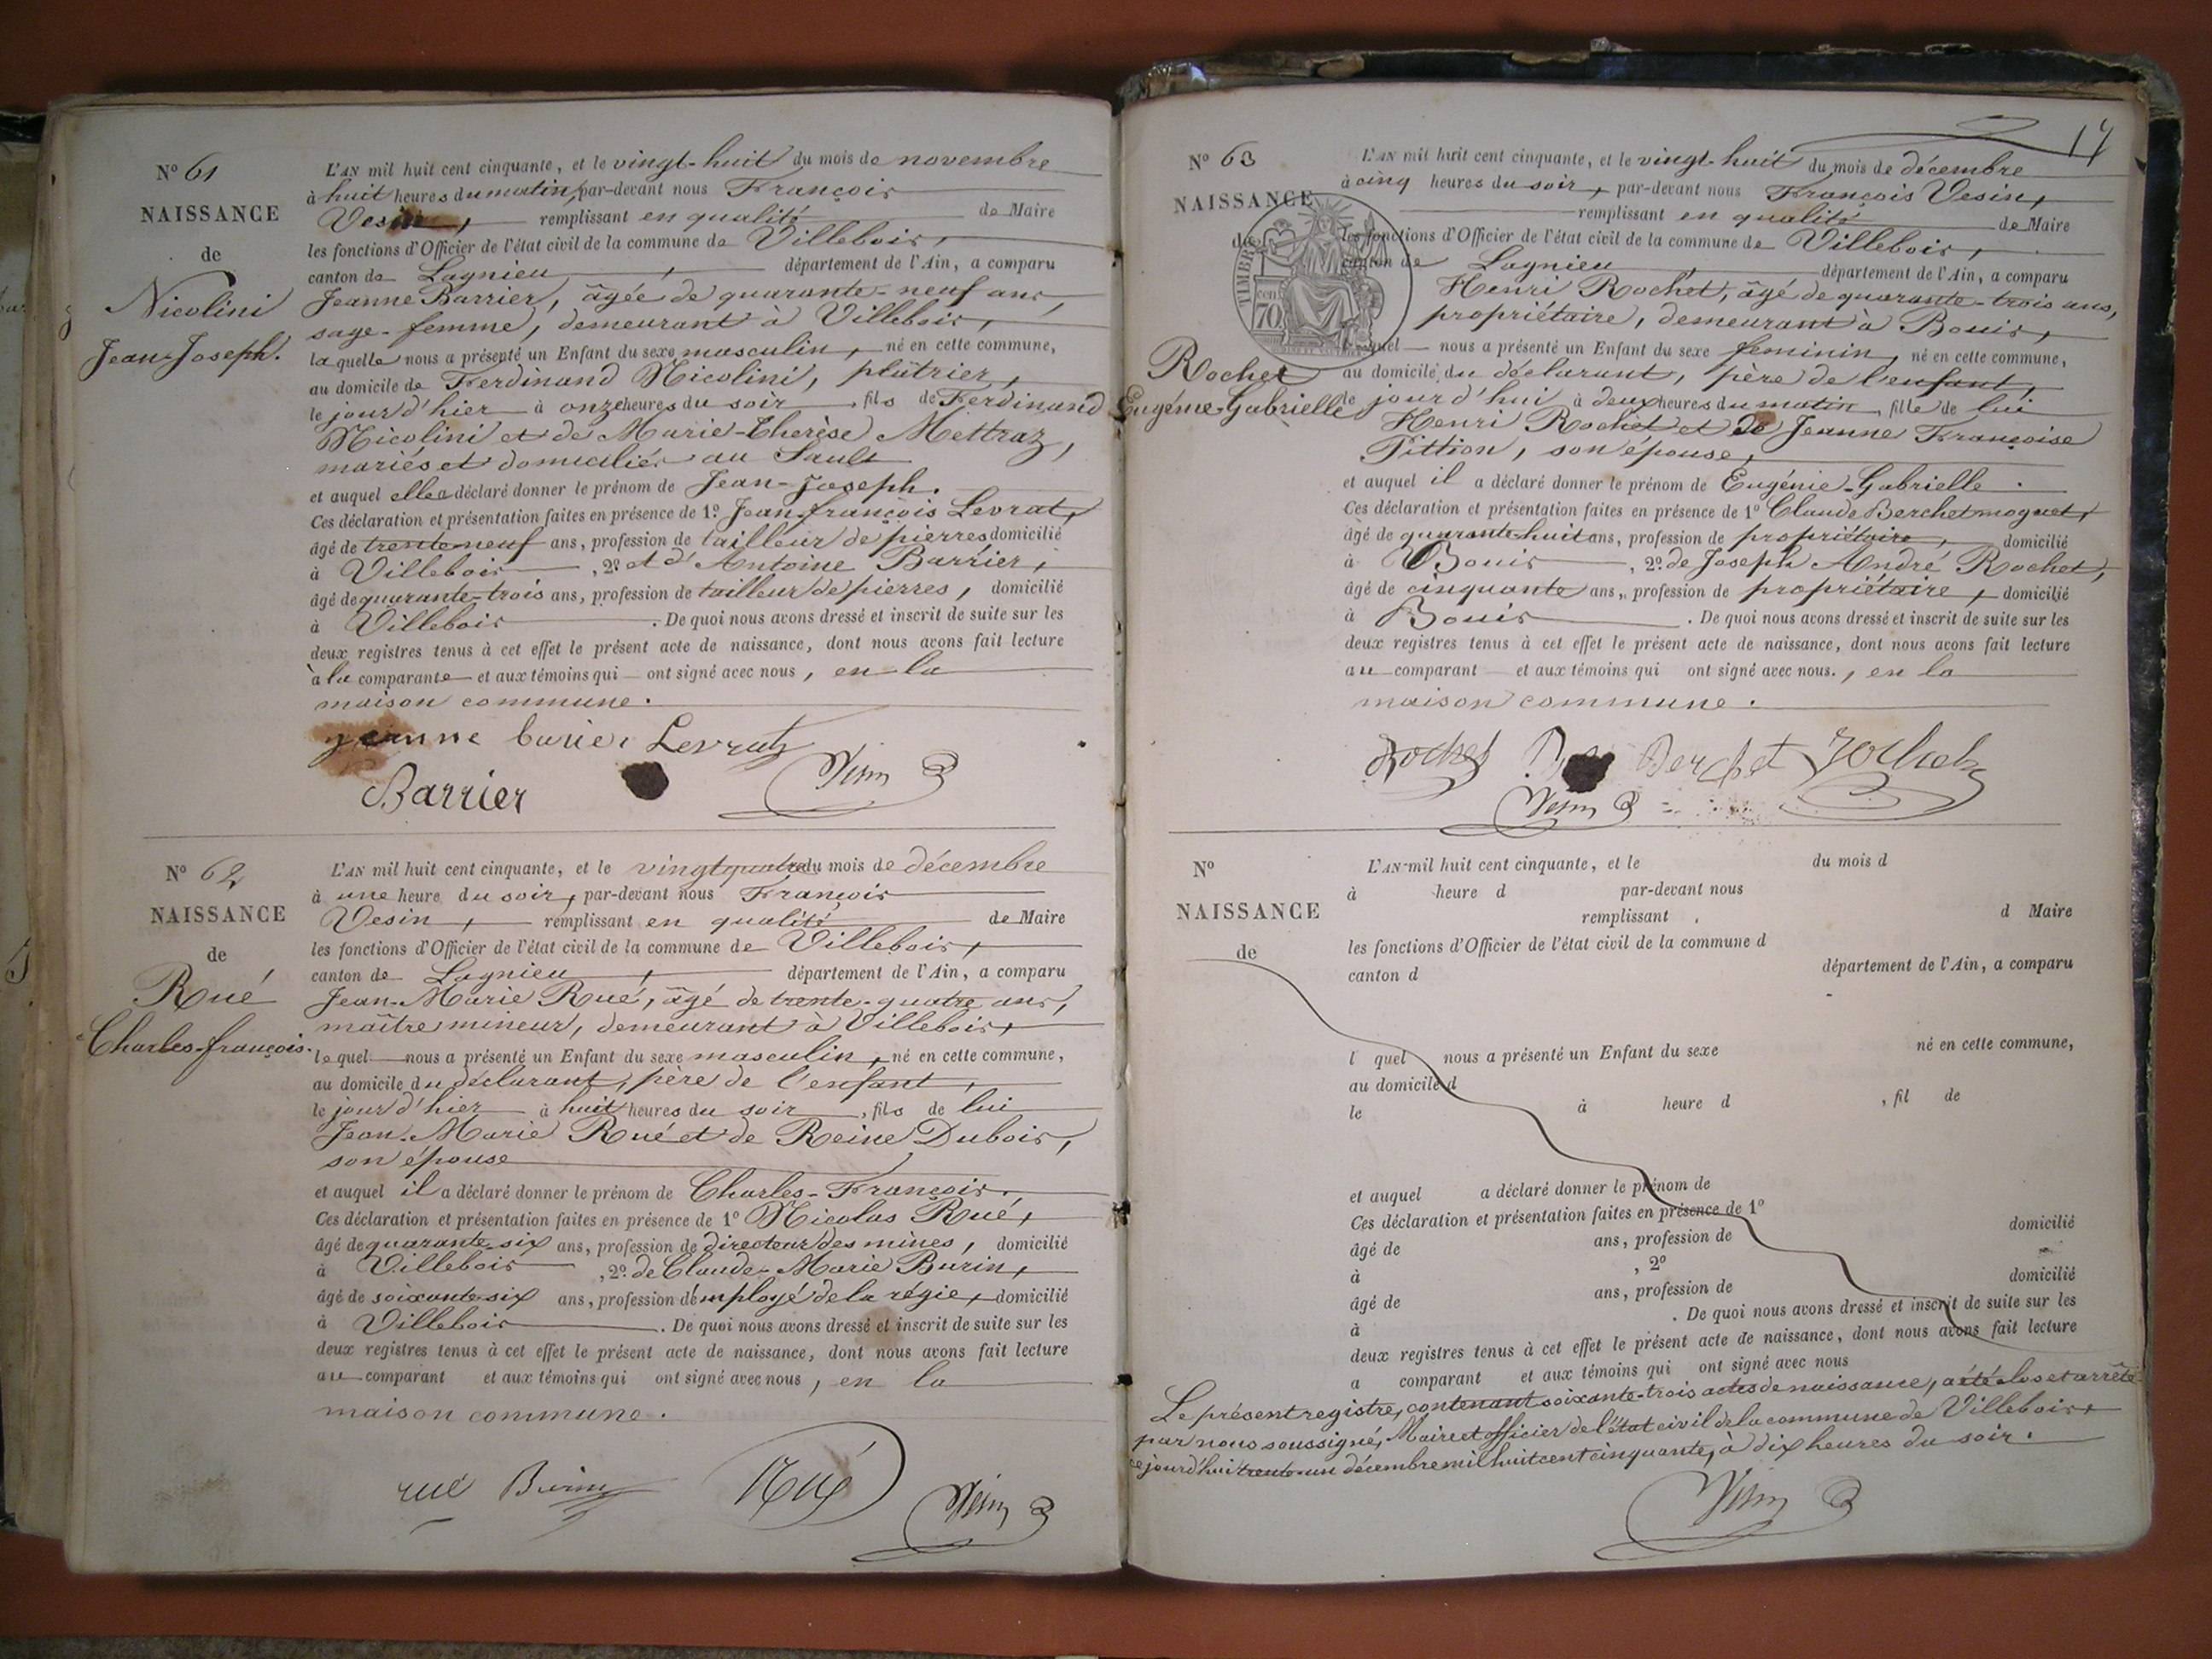 N° 61
NAISSANCE
de
Nicolini
Jean-Joseph.
L'AN mil huit cent cinquante, et le vingt-huit du mois de novembre
à huit heures du matin, par-devant nous François
Vesin, remplissant en qualité de Maire
les fonctions d'Officier de l'état civil de la commune de Villebois,
canton de Lagnieu, département de l'Ain, a comparu
Jeanne Barrier, âgée de quarante-neuf ans,
sage-femme, demeurant à Villebois,
laquelle nous a présenté un Enfant du sexe masculin, né en cette commune,
au domicile de Ferdinand Nicolini, plâtrier,
le jour d'hier à onze heures du soir, fils de Ferdinand
Nicolini et de Marie-Therèse Mettraz,
mariés et domiciliés au Sault
et auquel elle a déclaré donner le prénom de Jean-Joseph.
Ces déclaration et présentation faites en présence de 1° Jean-françois Levrat,
âgé de trente neuf ans, profession de tailleur de pierres domicilié
à Villebois, 2° et d'Antoine Barrier,
âgé de quarante-trois ans, profession de tailleur de pierres, domicilié
à Villebois. De quoi nous avons dressé et inscrit de suite sur les
deux registres tenus à cet effet le présent acte de naissance, dont nous avons fait lecture
à la comparante et aux témoins qui ont signé avec nous, en la
maison commune.
jeanne barier Levrat
Vesin
Barrier
N° 62
NAISSANCE
de
Rué
Charles-françois.
L'AN mil huit cent cinquante, et le vingt quatre du mois de décembre
à une heure du soir, par-devant nous François
Vesin, remplissant en qualité de Maire
les fonctions d'Officier de l'état civil de la commune de Villebois,
canton de Lagnieu, département de l'Ain, a comparu
Jean-Marie Rué, âgé de trente-quatre ans,
maître mineur, demeurant à Villebois,
lequel nous a présenté un Enfant du sexe masculin, né en cette commune,
au domicile du déclarant, père de l'enfant,
le jour d'hier à huit heures du soir, fils de lui
Jean-Marie Rué et de Reine Dubois,
son épouse
et auquel il a déclaré donner le prénom de Charles-François.
Ces déclaration et présentation faites en présence de 1° Nicolas Rué,
âgé de quarante six ans, profession de directeur des mines, domicilié
à Villebois, 2° de Claude-Marie Burin,
âgé de soixante six ans, profession d'employé de la régie, domicilié
à Villebois. De quoi nous avons dressé et inscrit de suite sur les
deux registres tenus à cet effet le présent acte de naissance, dont nous avons fait lecture
au comparant et aux témoins qui ont signé avec nous, en la
maison commune.
rué Burin Rué Vesin
17
N° 63
NAISSANCE
de
TIMBRE
cen
70
Rochet
Eugénie-Gabrielle
L'AN mil huit cent cinquante, et le vingt-huit du mois de décembre
à cinq heures du soir, par-devant nous François Vesin,
remplissant en qualité de Maire
les fonctions d'Officier de l'état civil de la commune de Villebois,
canton de Lagnieu, département de l'Ain, a comparu
Henri Rochet, âgé de quarante-trois ans,
propriétaire, demeurant à Bouis,
lequel nous a présenté un Enfant du sexe feminin, né en cette commune,
au domicile du déclarant, père de l'enfant,
le jour d'hui à deux heures du matin, fille de lui
Henri Rochet et de Jeanne Françoise
Pittion, son épouse,
et auquel il a déclaré donner le prénom de Eugénie-Gabrielle.
Ces déclaration et présentation faites en présence de 1° Claude Berchet moguet,
âgé de quarante huit ans, profession de propriétaire, domicilié
à Bouis, 2° de Joseph André Rochet,
âgé de cinquante ans, profession de propriétaire, domicilié
à Bouis. De quoi nous avons dressé et inscrit de suite sur les
deux registres tenus à cet effet le présent acte de naissance, dont nous avons fait lecture
au comparant et aux témoins qui ont signé avec nous., en la
maison commune.
Rochet Berchet Rochet
Vesin
N°
NAISSANCE
de
L'AN mil huit cent cinquante, et le du mois d
à heure d par-devant nous
remplissant d Maire
les fonctions d'Officier de l'état civil de la commune d
canton d département de l'Ain, a comparu
l quel nous a présenté un Enfant du sexe né en cette commune,
au domicile d
le à heure d , fil de
et auquel a déclaré donner le prénom de
Ces déclaration et présentation faites en présence de 1°
âgé de ans, profession de domicilié
à , 2°
âgé de ans, profession de domicilié
à . De quoi nous avons dressé et inscrit de suite sur les
deux registres tenus à cet effet le présent acte de naissance, dont nous avons fait lecture
a comparant et aux témoins qui ont signé avec nous
Le présent registre, contenant soixante-trois actes de naissance, a été clos et arrêté
par nous soussigné, Maire et officier de l'état civil de la commune de Villebois,
ce jourd'hui trente-un décembre mil huit cent cinquante, à dix heures du soir.
Vesin